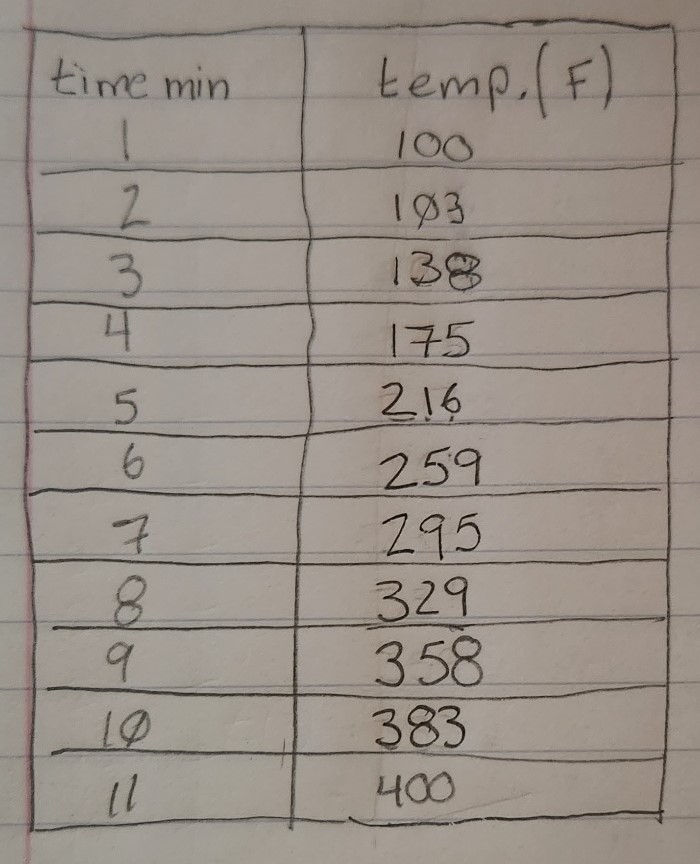 time min temp. (F)
1 100
2 103
3 138
4 175
5 216
6 259
7 295
8 329
9 358
10 383
11 400